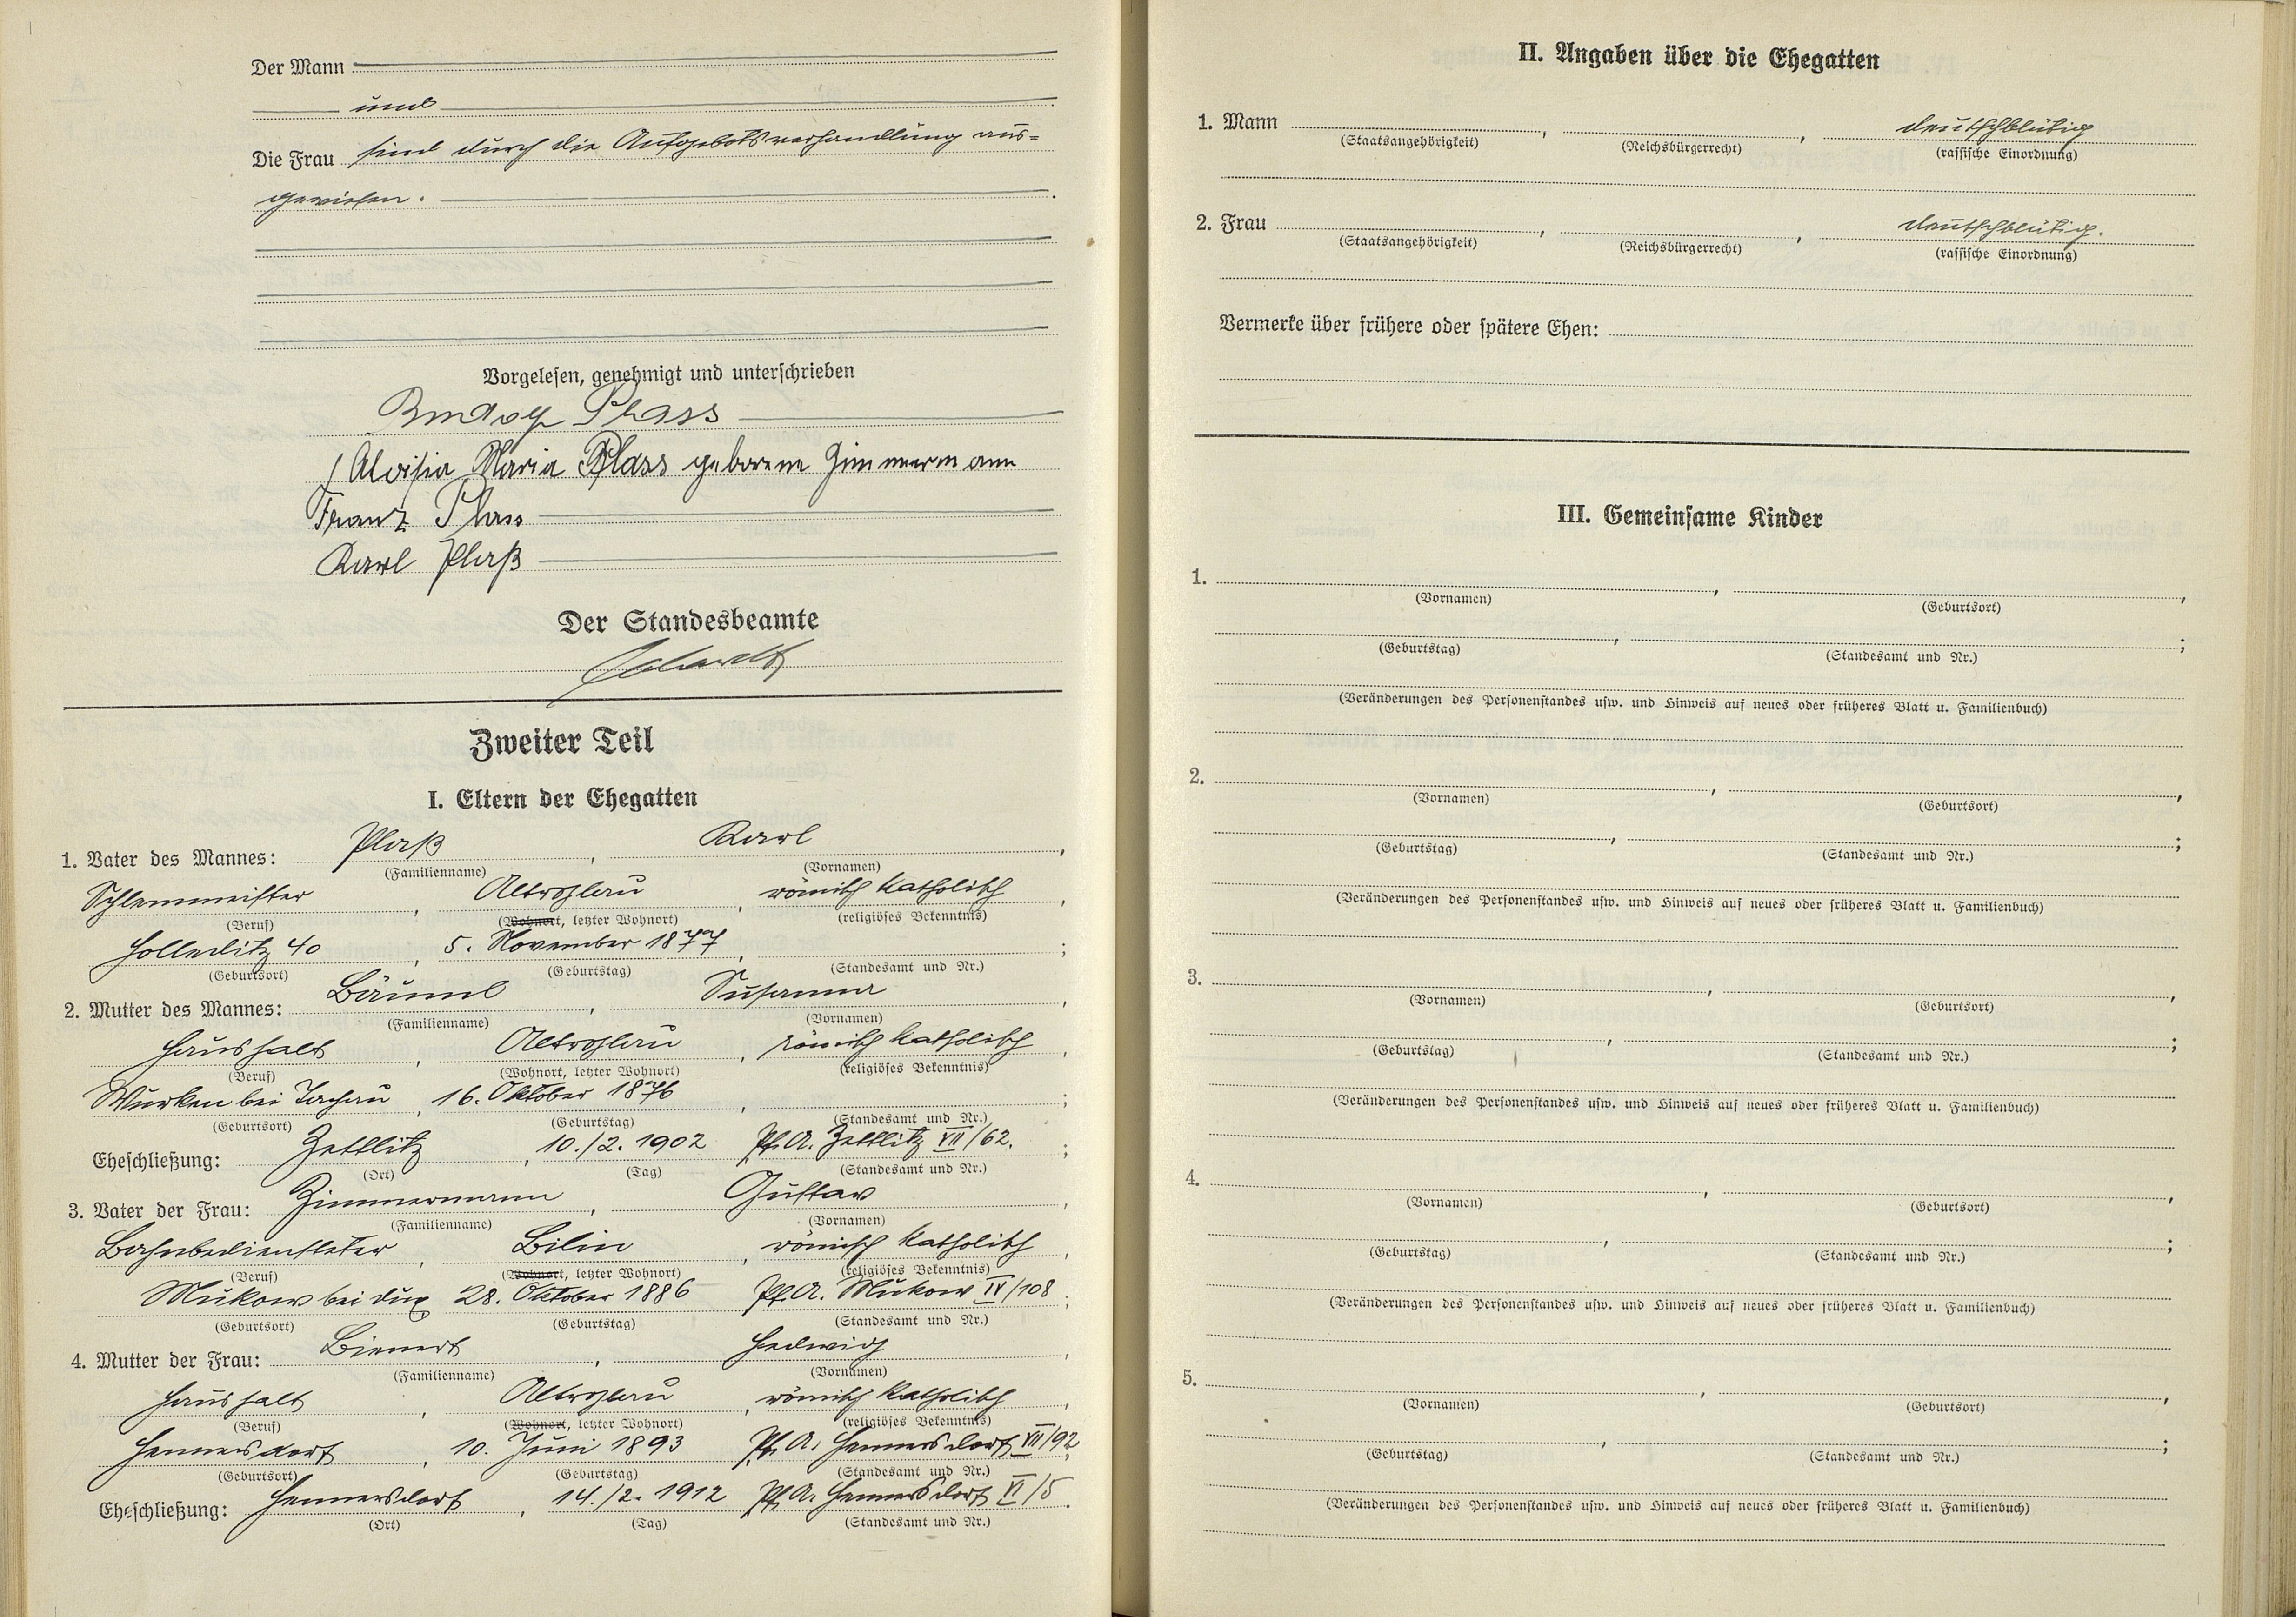 Der Mann
und
Die Frau sind durch die Aufgebotsverhandlung aus=
gewiesen.
Vorgelesen, genehmigt und unterschrieben
Rudolf Plass
Aloisia Maria Plass geborene Zimmermann
Franz Plass
Karl Plaß
Der Standesbeamte
Zweiter Teil
I. Eltern der Ehegatten
1. Vater des Mannes: Plaß, Karl,
(Familienname) (Vornamen)
Schlemmeister, Altrohlau, römisch katholisch,
(Beruf) (Wohnort, letzter Wohnort) (religiöses Bekenntnis)
40, 5. November 1877, ;
(Geburtsort) (Geburtstag) (Standesamt und Nr.)
2. Mutter des Mannes: Bäuml, Susanna,
(Familienname) (Vornamen)
Haushalt, Altrohlau, römisch katholisch,
(Beruf) (Wohnort, letzter Wohnort) (religiöses Bekenntnis)
Wurken bei Tachau, 16. Oktober 1876, ;
(Geburtsort) (Geburtstag) (Standesamt und Nr.)
Eheschließung: Zettlitz, 10./2. 1902 Pf.A. Zettlitz VII/62. ;
(Ort) (Tag) (Standesamt und Nr.)
3. Vater der Frau: Zimmermann, Gustav,
(Familienname) (Vornamen)
Bahnbediensteter, Bilin, römisch katholisch,
(Beruf) (Wohnort, letzter Wohnort) (religiöses Bekenntnis)
Mukow bei Dux 28. Oktober 1886 Pf.A. Mukow IV/108 ;
(Geburtsort) (Geburtstag) (Standesamt und Nr.)
4. Mutter der Frau: Bienert, Hedwig,
(Familienname) (Vornamen)
Haushalt, Altrohlau, römisch katholisch,
(Beruf) (Wohnort, letzter Wohnort) (religiöses Bekenntnis)
Hennersdorf, 10. Juni 1893 Pf.A. Hennersdorf VII/92 ;
(Geburtsort) (Geburtstag) (Standesamt und Nr.)
Eheschließung: Hennersdorf, 14./2. 1912 Pf.A. Hennersdorf VI/5.
(Ort) (Tag) (Standesamt und Nr.)
II. Angaben über die Ehegatten
1. Mann , , deutschblütig
(Staatsangehörigkeit) (Reichsbürgerrecht) (rassische Einordnung)
2. Frau , , deutschblütig.
(Staatsangehörigkeit) (Reichsbürgerrecht) (rassische Einordnung)
Vermerke über frühere oder spätere Ehen:
III. Gemeinsame Kinder
1. , ,
(Vornamen) (Geburtsort)
, ;
(Geburtstag) (Standesamt und Nr.)
(Veränderungen des Personenstandes usw. und Hinweis auf neues oder früheres Blatt u. Familienbuch)
2. , ,
(Vornamen) (Geburtsort)
, ;
(Geburtstag) (Standesamt und Nr.)
(Veränderungen des Personenstandes usw. und Hinweis auf neues oder früheres Blatt u. Familienbuch)
3. , ,
(Vornamen) (Geburtsort)
, ;
(Geburtstag) (Standesamt und Nr.)
(Veränderungen des Personenstandes usw. und Hinweis auf neues oder früheres Blatt u. Familienbuch)
4. , ,
(Vornamen) (Geburtsort)
, ;
(Geburtstag) (Standesamt und Nr.)
(Veränderungen des Personenstandes usw. und Hinweis auf neues oder früheres Blatt u. Familienbuch)
5. , ,
(Vornamen) (Geburtsort)
, ;
(Geburtstag) (Standesamt und Nr.)
(Veränderungen des Personenstandes usw. und Hinweis auf neues oder früheres Blatt u. Familienbuch)